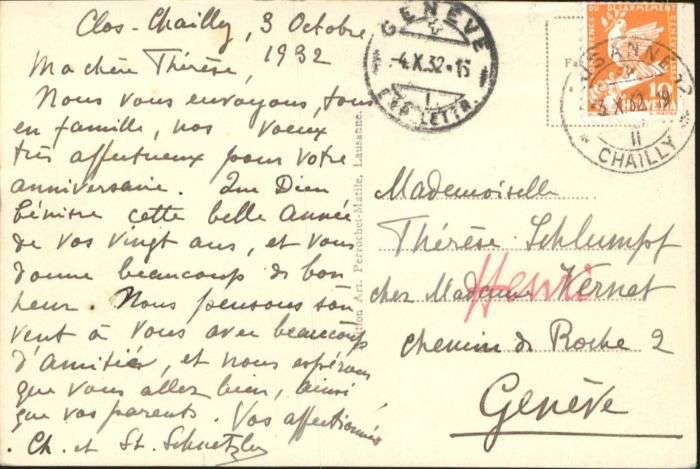 Clos-Chailly, 3 Octobre
1932
Ma chère Thérèse,
Nous vous envoyons, tous
en famille, nos voeux
très affectueux pour votre
anniversaire. Que Dieu
bénisse cette belle année
de vos vingt ans, et vous
donne beaucoup de bon
heur. Nous pensons sou
vent à vous avec beaucoup
d'amitié, et nous espérons
que vous allez bien, ainsi
que vos parents. Vos affectionnés
Ch. et St. Schnetzler
GENÈVE
-4.X.32-15
EXP. LETTR.
CONFÉRENCE DU DÉSARMEMENT
10
HELVETIA
LAUSANNE
3.X.32
II
CHAILLY
Art. Perrochet-Matile, Lausanne.
Mademoiselle
Thérèse Schlumpf
Henri
chez Madame Vernet
Chemin de Roche 2
Genève